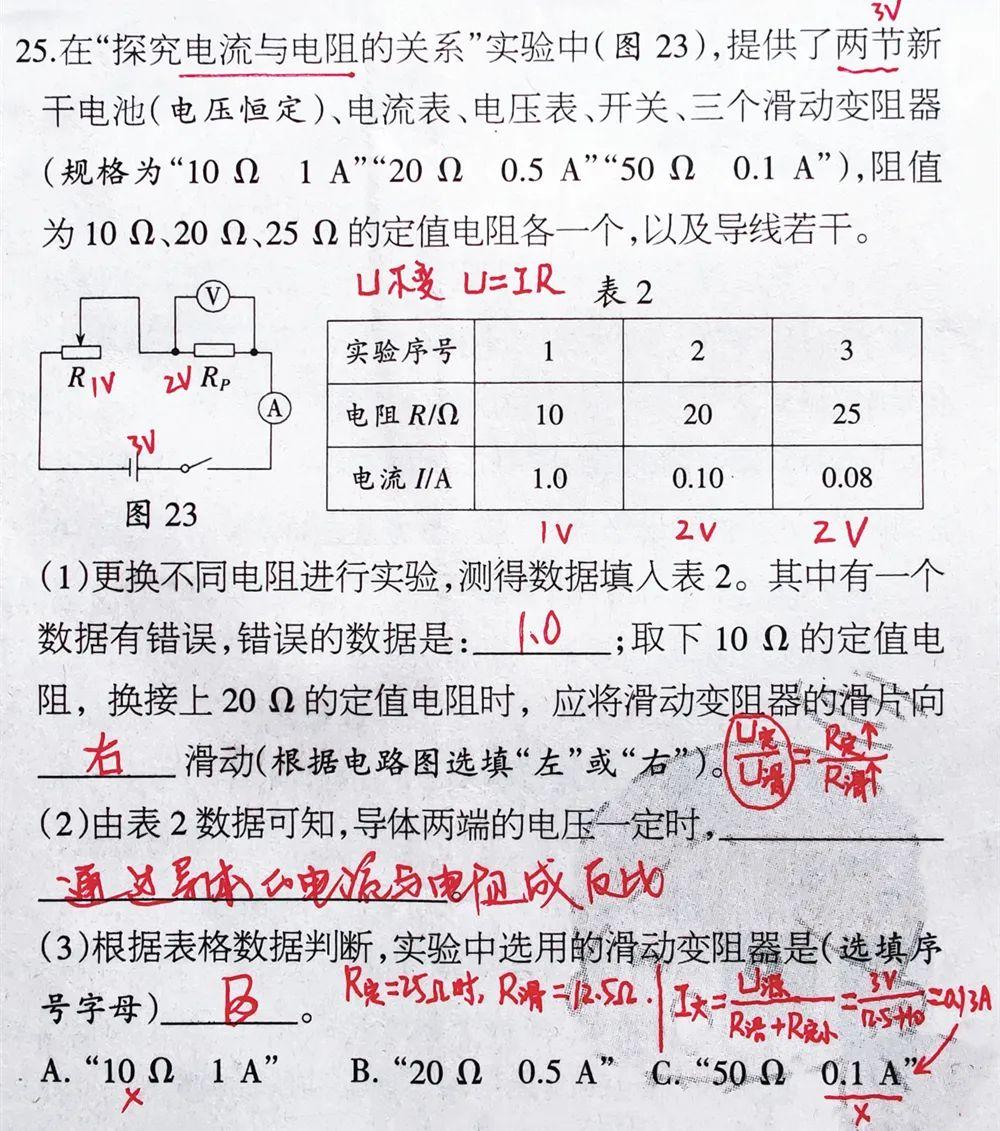 3V
25.在“探究电流与电阻的关系”实验中(图 23),提供了两节新
干电池(电压恒定)、电流表、电压表、开关、三个滑动变阻器
(规格为“10 Ω 1 A”“20 Ω 0.5 A”“50 Ω 0.1 A”),阻值
为 10 Ω、20 Ω、25 Ω 的定值电阻各一个,以及导线若干。
V
R 1V 2V RP
A
3V
图 23
U不变 U=IR 表 2
实验序号 1 2 3
电阻 R/Ω 10 20 25
电流 I/A 1.0 0.10 0.08
1V 2V 2V
(1)更换不同电阻进行实验,测得数据填入表 2。其中有一个
数据有错误,错误的数据是: 1.0 ;取下 10 Ω 的定值电
阻，换接上 20 Ω 的定值电阻时，应将滑动变阻器的滑片向
右 滑动(根据电路图选填“左”或“右”)。 U定/U滑=R定↑/R滑↑
(2)由表 2 数据可知,导体两端的电压一定时,
通过导体的电流与电阻成反比 。
(3)根据表格数据判断,实验中选用的滑动变阻器是(选填序
号字母) B 。 R定=25Ω时, R滑=12.5Ω. I大=U源/(R滑+R定小)=3V/(12.5+10)=0.13A
A. “10 Ω 1 A” B. “20 Ω 0.5 A” C. “50 Ω 0.1 A”
× ×